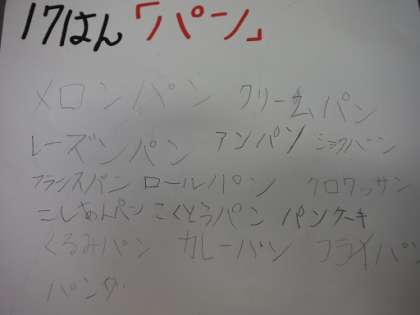 17はん「パン」
メロンパン クリームパン
レーズンパン アンパン ショクパン
フランスパン ロールパン クロワッサン
こしあんパン こくとうパン パンケーキ
くるみパン カレーパン フライパン
パンダ